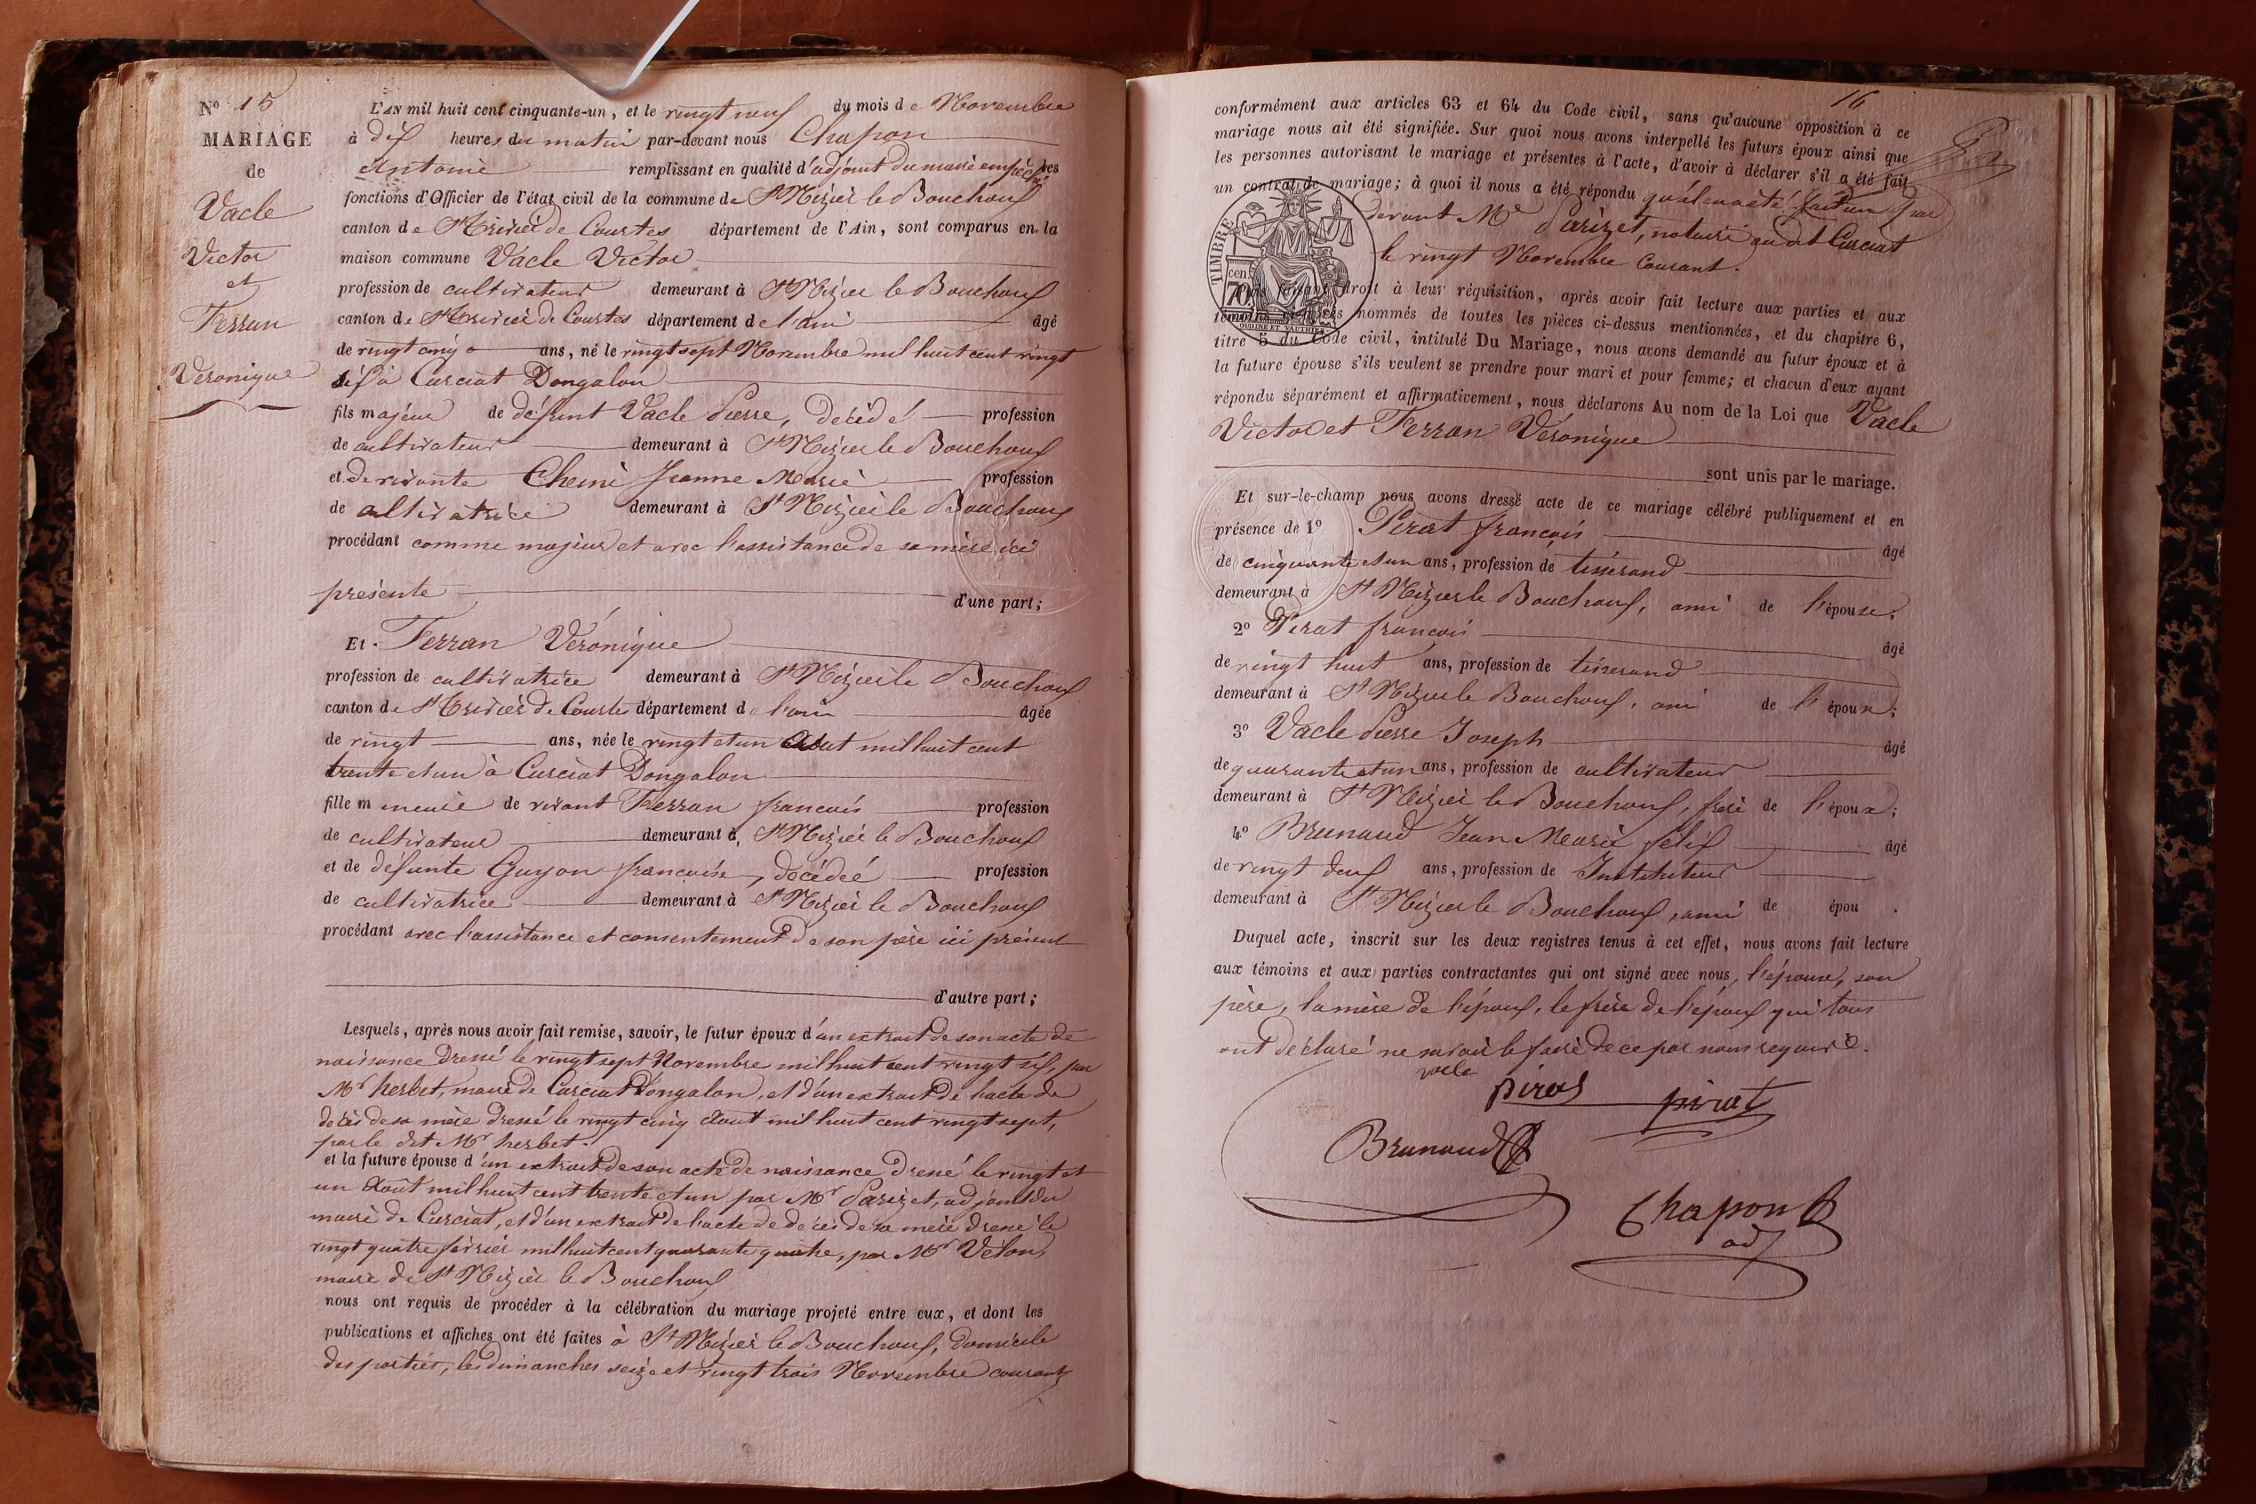 N.º 15
MARIAGE
de
Vacle
Victor
et
Ferran
Véronique
L'AN mil huit cent cinquante-un, et le vingt neuf du mois de Novembre
à dix heures du matin par-devant nous Chapon
Antoine remplissant en qualité d'adjoint du maire empêché les
fonctions d'Officier de l'état civil de la commune de St Nizier le Bouchoux
canton de St Trivier de Courtes département de l'Ain, sont comparus en la
maison commune Vacle Victor
profession de cultivateur demeurant à St Nizier le Bouchoux
canton de St Trivier de Courtes département de l'ain âgé
de vingt cinq ans, né le vingt sept Novembre mil huit cent vingt
six à Curciat Dongalon
fils majeur de défunt Vacle Pierre, décédé profession
de cultivateur demeurant à St Nizier le Bouchoux
et de vivante Chêne Jeanne Marie profession
de cultivatrice demeurant à St Nizier le Bouchoux
procédant comme majeur et avec l'assistance de sa mère ici
présente d'une part;
Et Ferran Véronique
profession de cultivatrice demeurant à St Nizier le Bouchoux
canton de St Trivier de Courtes département de l'ain âgée
de vingt ans, née le vingt et un Aout mil huit cent
trente et un à Curciat Dongalon
fille mineure de vivant Ferran françois profession
de cultivateur demeurant à St Nizier le Bouchoux
et de défunte Guyon françoise, décédée profession
de cultivatrice demeurant à St Nizier le Bouchoux
procédant avec l'assistance et consentement de son père ici présent
d'autre part;
Lesquels, après nous avoir fait remise, savoir, le futur époux d'un extrait de son acte de
naissance dressé le vingt sept Novembre mil huit cent vingt six, par
Mr herbet, maire de Curciat Dongalon, et d'un extrait de l'acte de
décès de sa mère dressé le vingt cinq Aout mil huit cent vingt sept,
par le dit Mr herbet.
et la future épouse d'un extrait de son acte de naissance dressé le vingt et
un Août mil huit cent trente et un par Mr Parizet, adjoint du
maire de Curciat, et d'un extrait de l'acte de décès de sa mère dressé le
vingt quatre février mil huit cent quarante quatre, par Mr Velon,
maire de St Nizier le Bouchoux
nous ont requis de procéder à la célébration du mariage projeté entre eux, et dont les
publications et affiches ont été faites à St Nizier le Bouchoux, domicile
des parties, les dimanches seize et vingt trois Novembre courant
16
conformément aux articles 63 et 64 du Code civil, sans qu'aucune opposition à ce
mariage nous ait été signifiée. Sur quoi nous avons interpellé les futurs époux ainsi que
les personnes autorisant le mariage et présentes à l'acte, d'avoir à déclarer s'il a été fait
un contrat de mariage; à quoi il nous a été répondu qu'il en a été fait un par
devant Me Parizet, notaire au dit Curciat
le vingt Novembre Courant.
TIMBRE
cen.
70
OUDINÉ ET VAUTHIER
faisant droit à leur réquisition, après avoir fait lecture aux parties et aux
témoins ci-après nommés de toutes les pièces ci-dessus mentionnées, et du chapitre 6,
titre 5 du Code civil, intitulé Du Mariage, nous avons demandé au futur époux et à
la future épouse s'ils veulent se prendre pour mari et pour femme; et chacun d'eux ayant
répondu séparément et affirmativement, nous déclarons Au nom de la Loi que Vacle
Victor et Ferran Véronique
sont unis par le mariage.
Et sur-le-champ nous avons dressé acte de ce mariage célébré publiquement et en
présence de 1º Pirat françois âgé
de cinquante et un ans, profession de tisserand
demeurant à St Nizier le Bouchoux, ami de l'épouse;
2º Pirat françois âgé
de vingt huit ans, profession de tisserand
demeurant à St Nizier le Bouchoux, ami de l'époux;
3º Vacle Pierre Joseph âgé
de quarante et un ans, profession de cultivateur
demeurant à St Nizier le Bouchoux, frère de l'époux;
4º Brunaud Jean Marie félix âgé
de vingt deux ans, profession de Instituteur
demeurant à St Nizier le Bouchoux, ami de épou .
Duquel acte, inscrit sur les deux registres tenus à cet effet, nous avons fait lecture
aux témoins et aux parties contractantes qui ont signé avec nous, l'épouse, son
père, la mère de l'époux, le frère de l'époux qui tous
ont déclaré ne savoir le faire de ce par nous requis.
vacle
pirat pirat
Brunaud
Chapon
adj